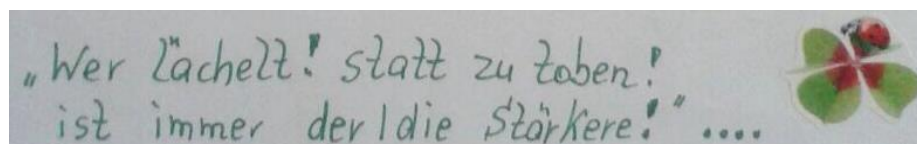 „Wer lächelt! statt zu toben!
ist immer der/die Stärkere!" ....